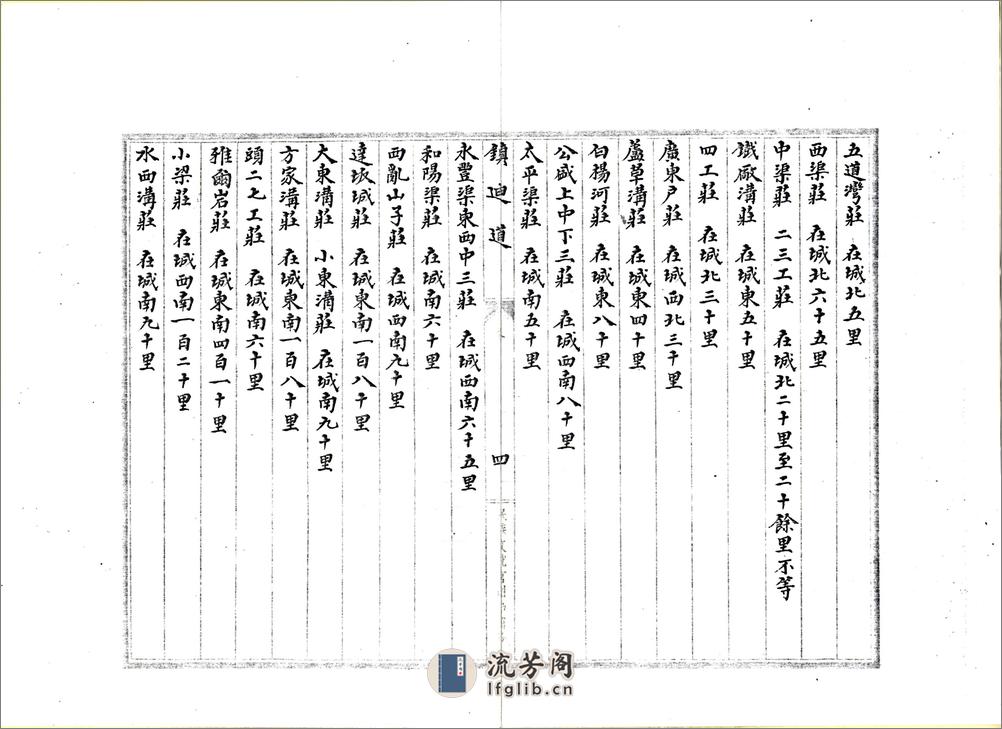 五道灣莊 在城北五里
西渠莊 在城北六十五里
中渠莊 二三工莊 在城北二十里至二十餘里不等
鐵廠溝莊 在城東五十里
四工莊 在城北三十里
廣東戶莊 在城西北三十里
蘆草溝莊 在城東四十里
白楊河莊 在城東八十里
公盛上中下三莊 在城西南八十里
太平渠莊 在城南五十里
鎮迪道 四
永豐渠東西中三莊 在城西南六十五里
和陽渠莊 在城南六十里
西亂山子莊 在城西南九十里
達坂城莊 在城東南一百八十里
大東溝莊 小東溝莊 在城南九十里
方家溝莊 在城東南一百八十里
頭二七工莊 在城南六十里
雅爾岩莊 在城東南四百一十里
小梁莊 在城西南一百二十里
水西溝莊 在城南九十里
流芳阁
lfglib.cn